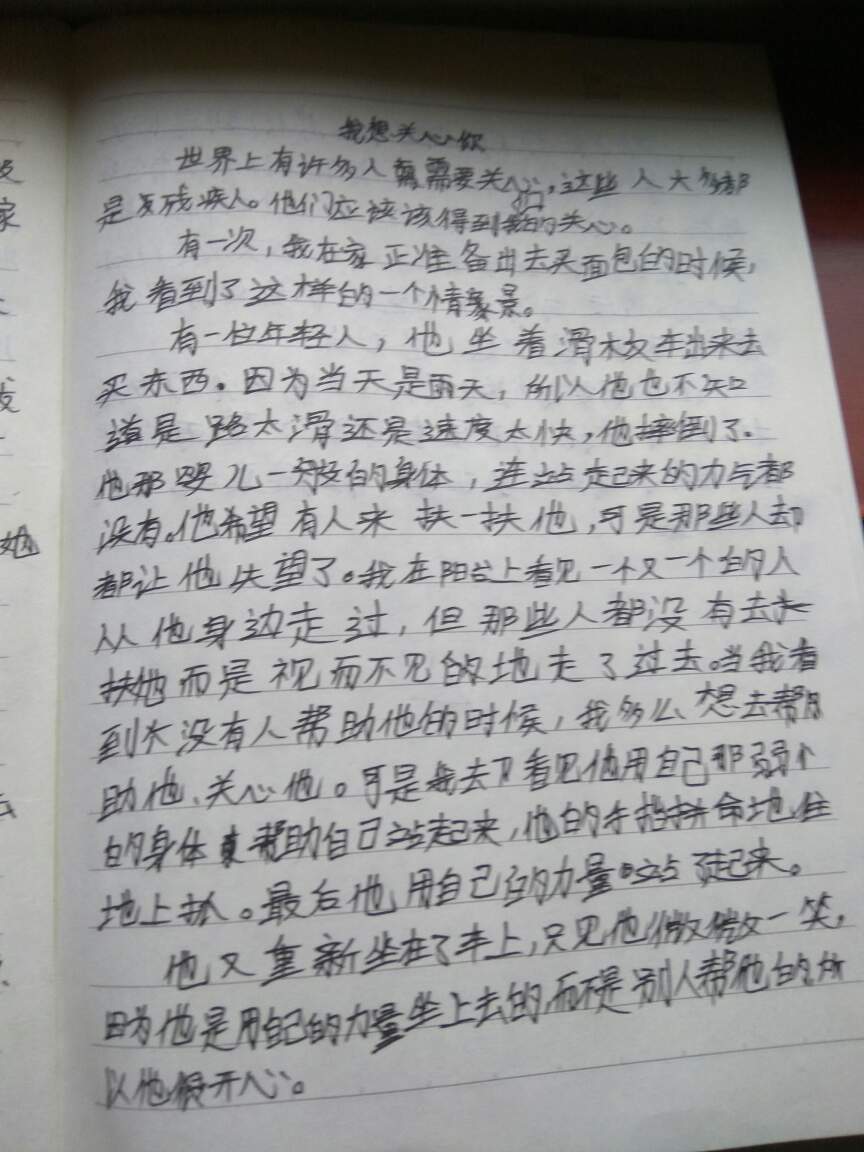 我想关心你
世界上有许多人需要关心,这些人大多都
是残疾人。他们应该该得到我们的关心。
有一次,我在家正准备出去买面包的时候,
我看到了这样的一个情景。
有一位年轻人,他坐着滑板车出来去
买东西。因为当天是雨天,所以他也不知
道是路太滑还是速度太快,他摔倒了。
他那婴儿一般的身体,连站起来的力气都
没有。他希望有人来扶一扶他,可是那些人却
都让他失望了。我在阳台上看见一个又一个的人
从他身边走过,但那些人都没有去
扶他而是视而不见的地走了过去。当我看
到没有人帮助他的时候,我多么想去帮
助他、关心他。可是我去看见他用自己那弱小
的身体帮助自己站起来,他的手指拼命地往
地上抓。最后他用自己的力量站了起来。
他又重新坐在了车上,只见他微微一笑,
因为他是用自己的力量坐上去的,而不是别人帮他的所
以他很开心。
家
她